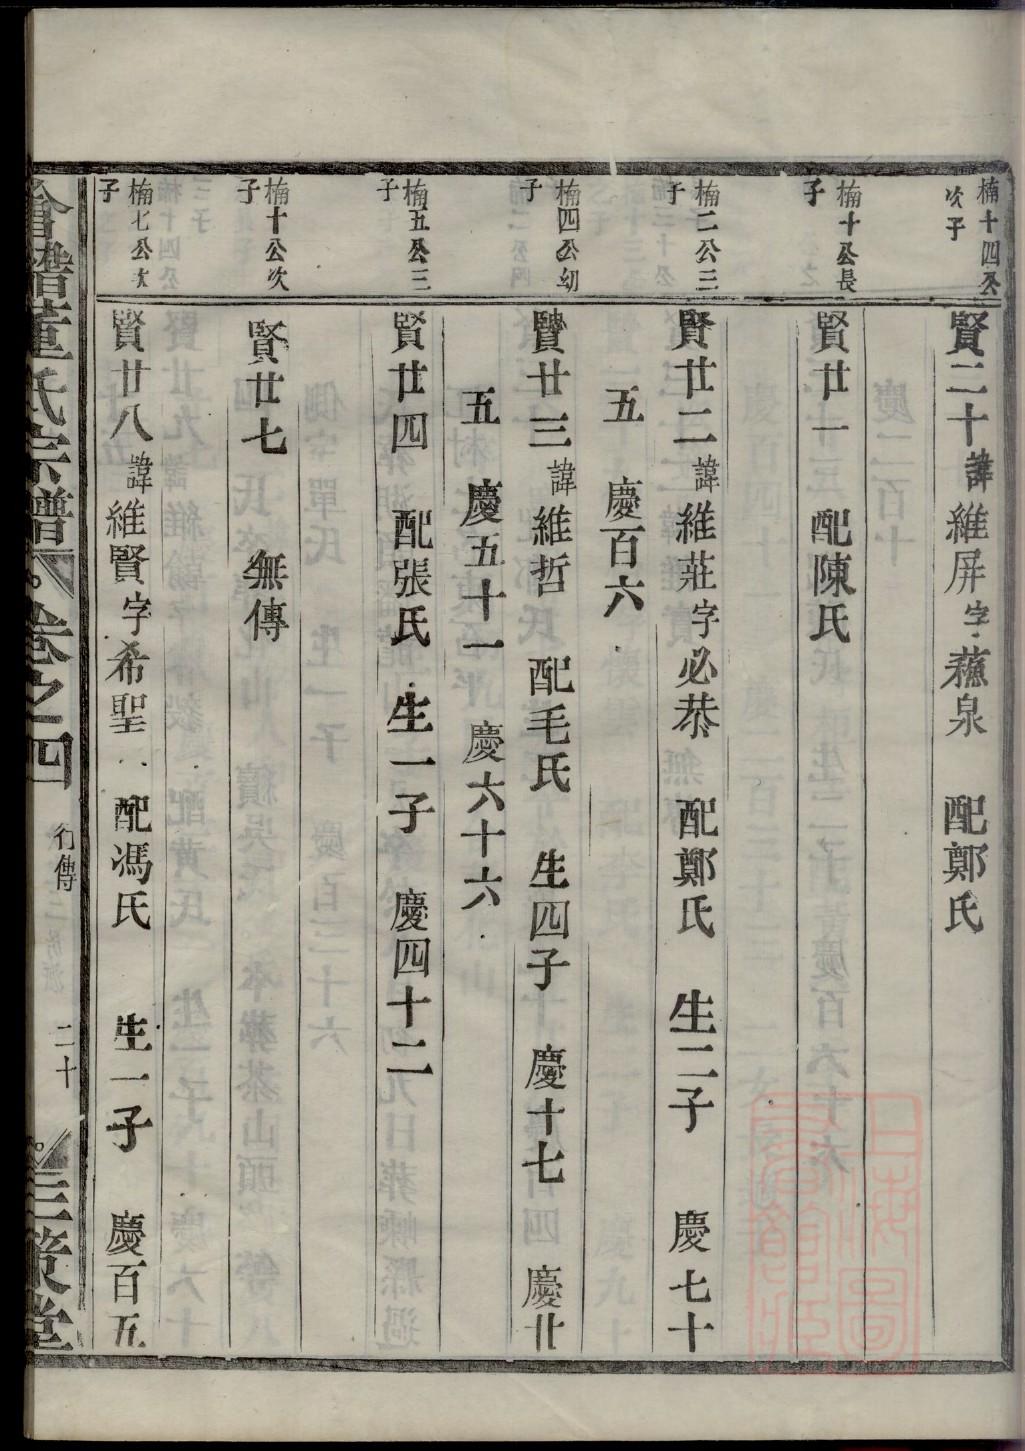 楠十四公
次子
賢二十諱維屏字蘓泉 配鄭氏
楠十公長
子
賢廿一 配陳氏
楠二公三
子
賢廿二諱維莊字必恭 配鄭氏 生二子 慶七十
五 慶百六
楠四公幼
子
賢廿三諱維哲 配毛氏 生四子 慶十七 慶廿
五 慶五十一 慶六十六
楠五公三
子
賢廿四 配張氏 生一子 慶四十二
楠十公次
子
賢廿七 無傳
楠七公次
子
賢廿八諱維賢字希聖 配馮氏 生一子 慶百五
會稽董氏宗譜 卷之四 行傳 二十 三策堂